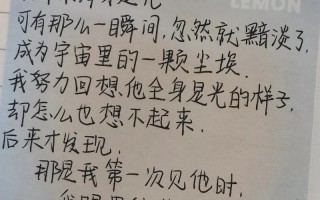 LEMON
可有那么一瞬间,忽然就黯淡了,
成为宇宙里的一颗尘埃.
我努力回想,他全身是光的样子,
却怎么也想不起来.
后来才发现,
那是我第一次见他时,